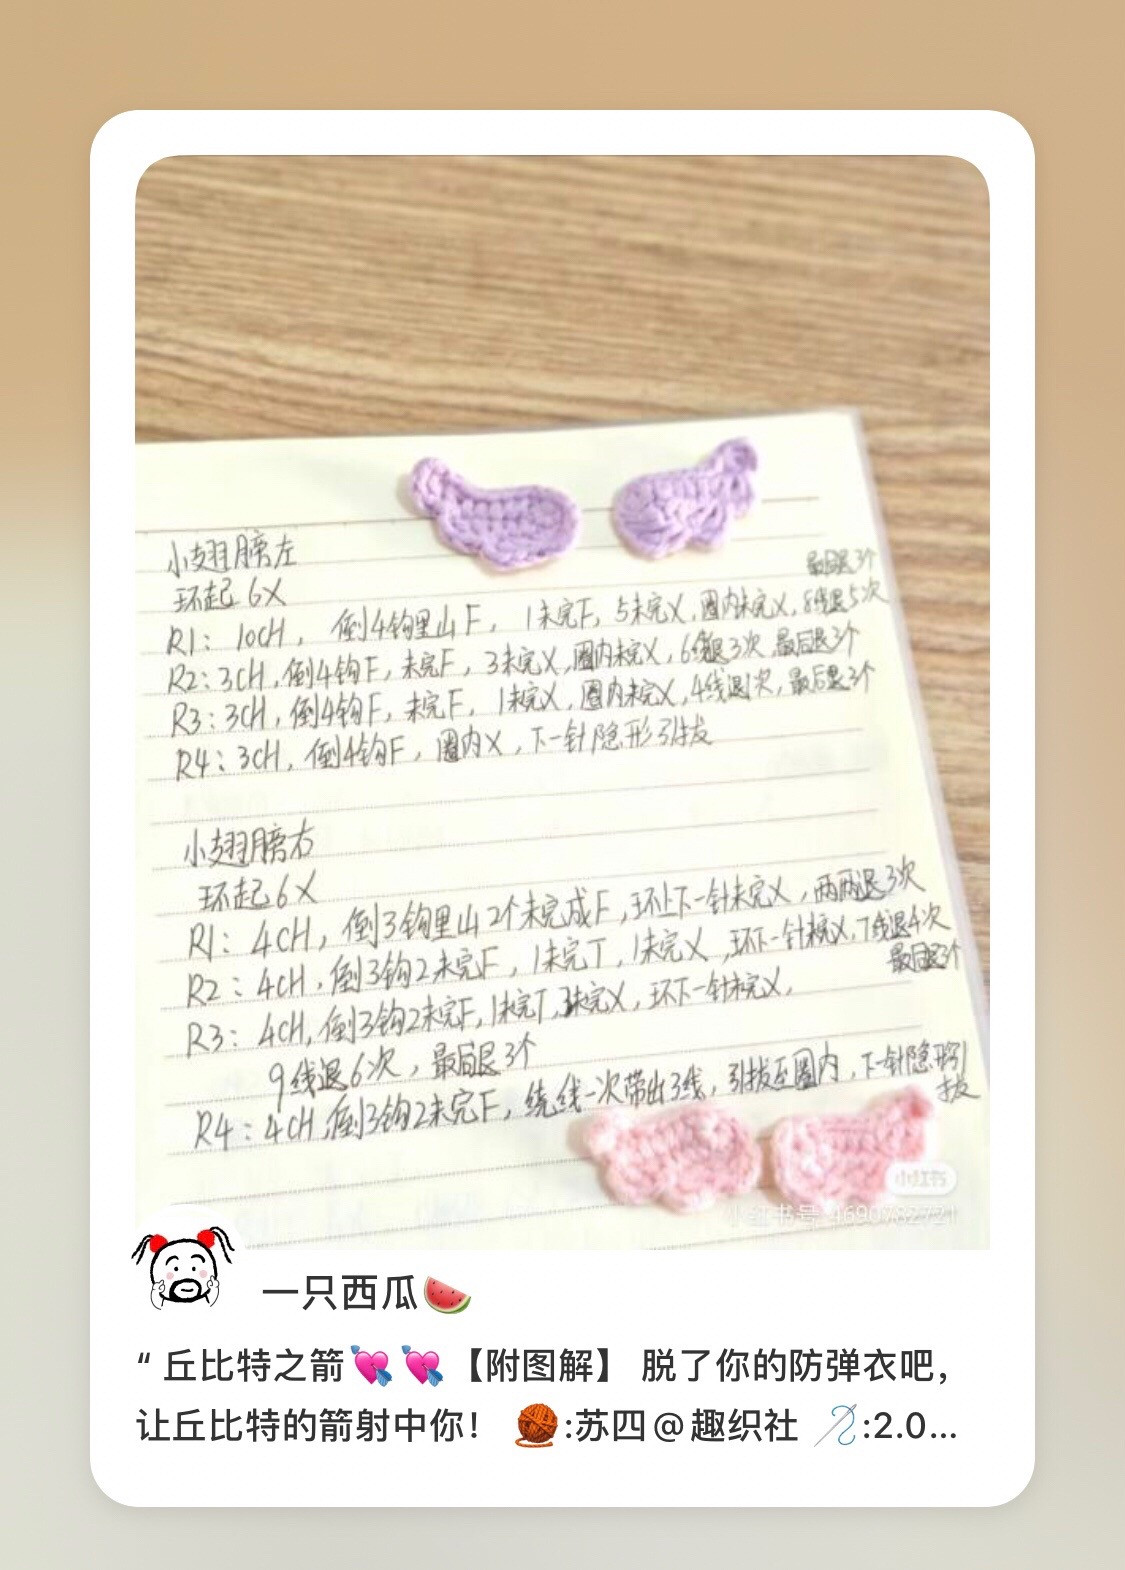 小翅膀左
环起6X
最后退3个
R1: 10CH, 倒4钩里山F, 1未完F, 5未完X, 圈内未完X, 8线退5次
R2: 3CH, 倒4钩F, 未完F, 3未完X, 圈内未X, 6线退3次, 最后退3个
R3: 3CH, 倒4钩F, 未完F, 1未完X, 圈内未完X, 4线退1次, 最后退3个
R4: 3CH, 倒4钩F, 圈内X, 下一针隐形引拔
小翅膀右
环起6X
R1: 4CH, 倒3钩里山2个未完成F, 环上下一针未完X, 两两退3次
R2: 4CH, 倒3钩2未完F, 1未完T, 1未完X, 环下一针未完X, 7线退4次
最后退3个
R3: 4CH, 倒3钩2未完F, 1未完T, 3未完X, 环下一针未完X,
9线退6次, 最后退3个
R4: 4CH, 倒3钩2未完F, 绕线一次带出3线, 引拔至圈内, 下一针隐形引
拔
小红书
小红书号: 4690782721
一只西瓜🍉
“ 丘比特之箭💘💘【附图解】 脱了你的防弹衣吧，
让丘比特的箭射中你！ 🧶:苏四@趣织社 🪡:2.0...